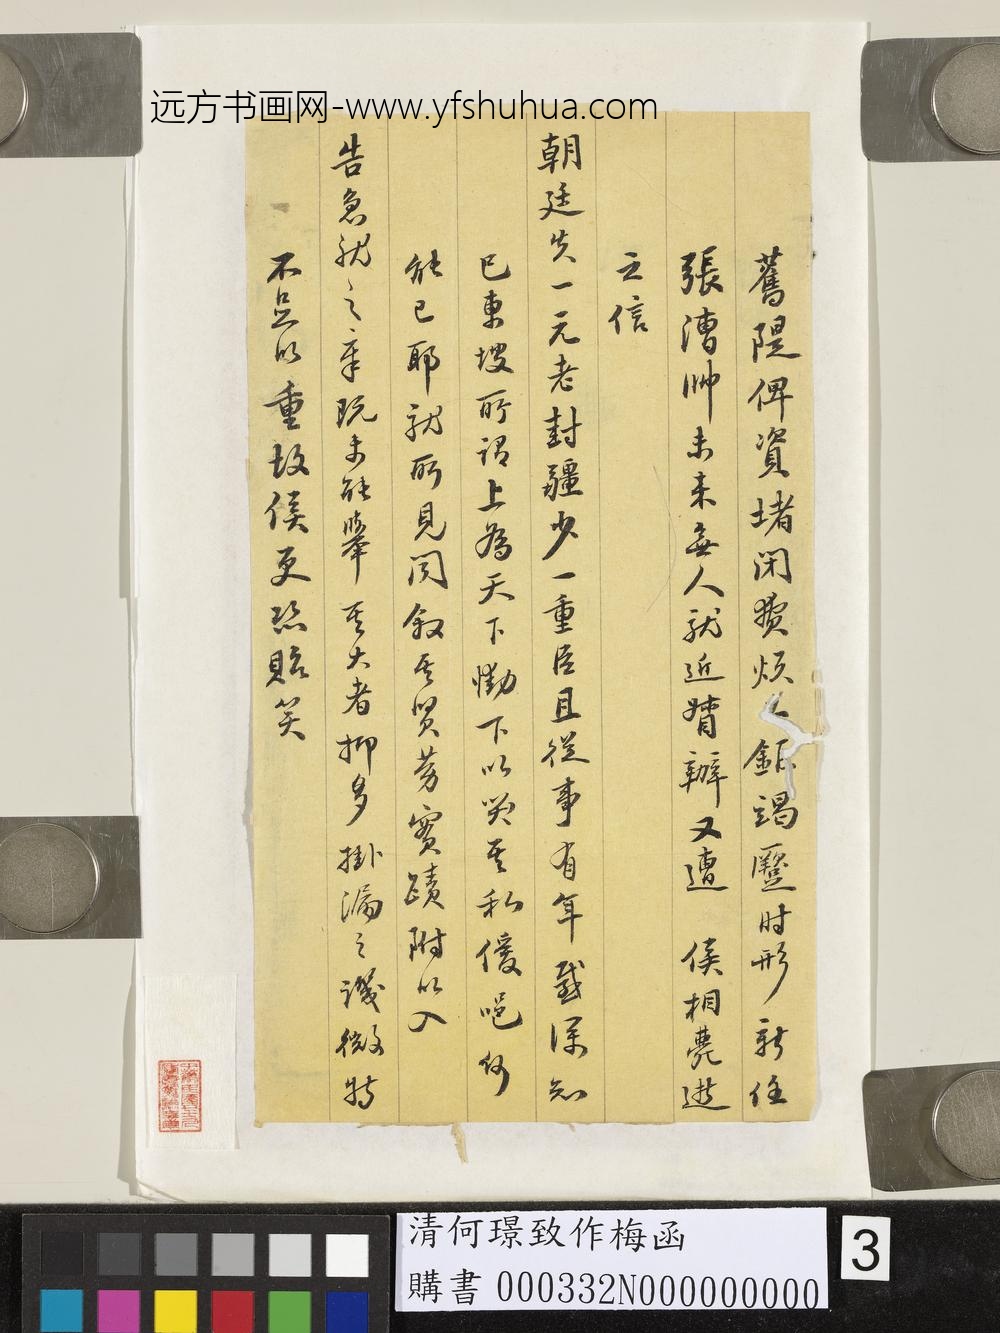 远方书画网-www.yfshuhua.com
舊隄俾資堵閉費煩 鉅竭蹷时形 新任
張漕帥未来無人就近 辦又遭 侯相薨逝
之信
朝廷失一元老封疆少一重臣且從事有年感深知
已東坡所謂上為天下慟下以哭其私僾唈何
能已耶就所見聞叙其賢勞實蹟附以入
告急就之章既未能舉其大者抑多掛漏之譏微特
不足以重故侯更恐貽笑
清何璟致作梅函
購書 000332N000000000
3